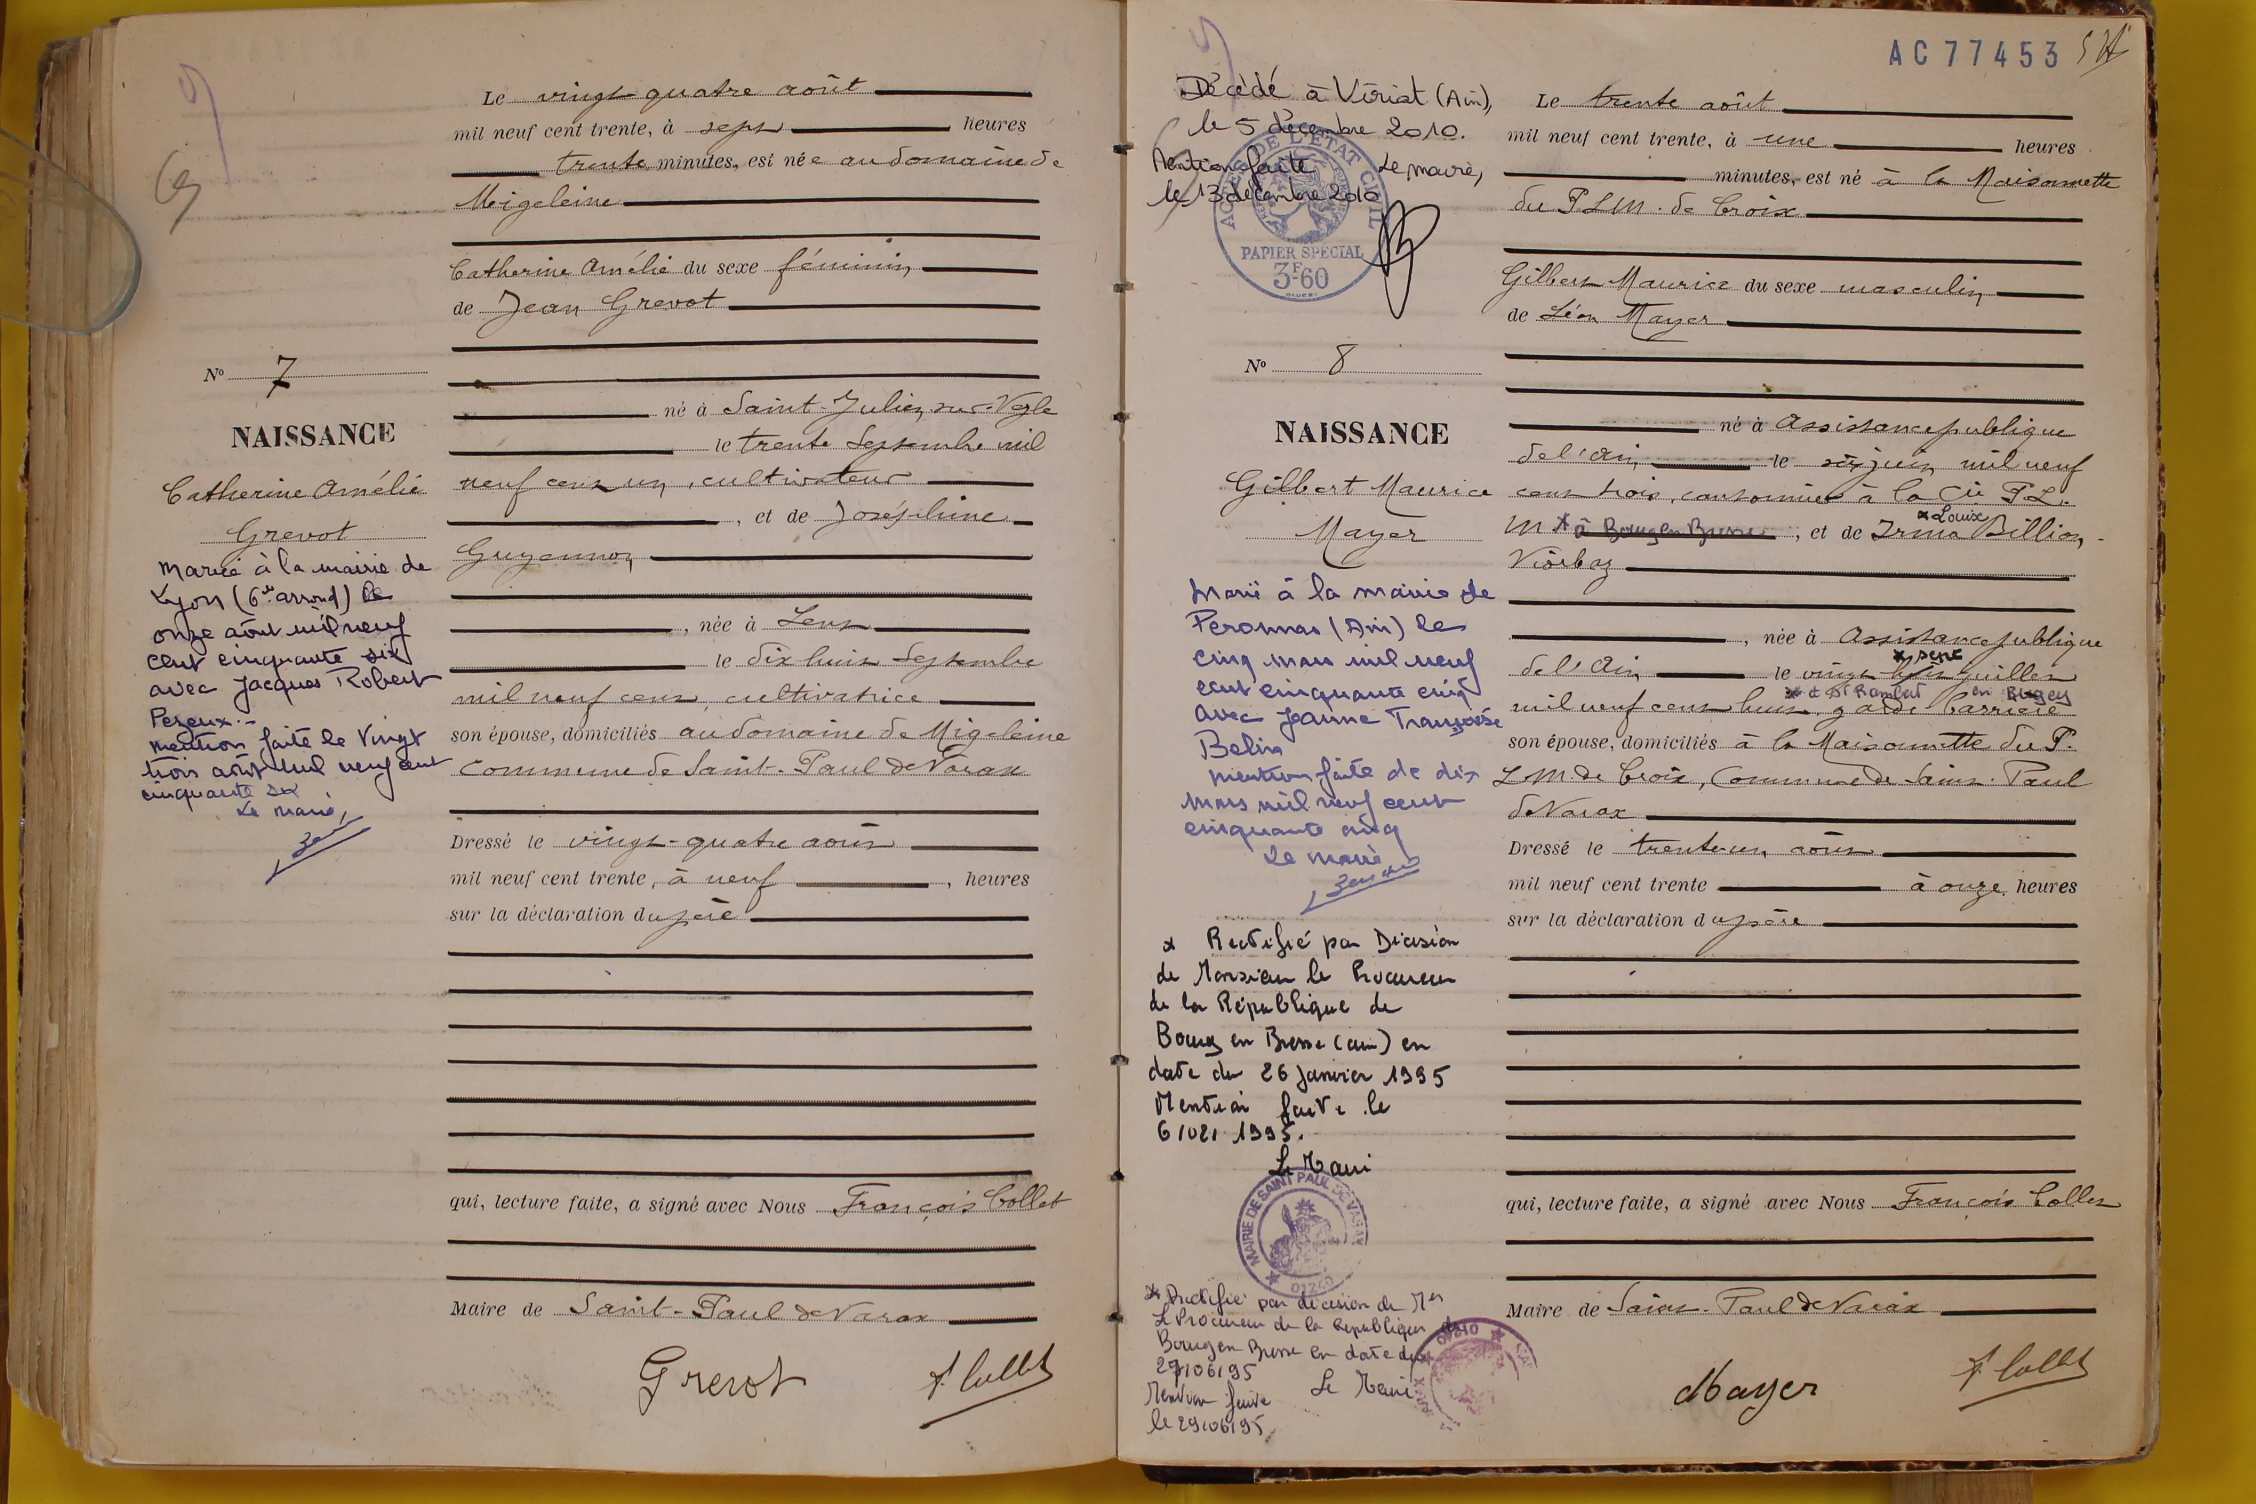 Le vingt quatre août
mil neuf cent trente, à sept heures
trente minutes, est née au domaine de
Migeleine
Catherine Amélie du sexe féminin
de Jean Grevot
No 7
NAISSANCE
Catherine Amélie
Grevot
né à Saint-Julien sur Veyle
le trente Septembre mil
neuf cent un, cultivateur
, et de Joséphine
Guyennon
, née à Lent
le dix huit Septembre
mil neuf cent, cultivatrice
son épouse, domiciliés au domaine de Migeleine
Commune de Saint-Paul de Varax
Dressé le vingt-quatre août
mil neuf cent trente, à neuf, heures
sur la déclaration du père
qui, lecture faite, a signé avec Nous François Collet
Maire de Saint-Paul de Varax
Grevot
F. Collet
Mariée à la mairie de
Lyon (6e arrond) le
onze août mil neuf
cent cinquante six
avec Jacques Robert
Pezeux.-
mention faite le vingt
trois août mil neuf cent
cinquante six
Le maire,
AC 77453
Décédé à Viriat (Ain),
le 5 décembre 2010.
Mention faite Le maire,
le 13 décembre 2010
ACTES DE L'ETAT CIVIL
PAPIER SPECIAL
3F60
Le trente août
mil neuf cent trente, à une heures
minutes, est né à la Maisonnette
du P L M. de Croix
Gilbert Maurice du sexe masculin
de Léon Mayer
No 8
NAISSANCE
Gilbert Maurice
Mayer
né à Assistance publique
de l'Ain le six juin mil neuf
cent trois, cantonnier à la Cie P. L.
M * à Bourg en Bresse, et de Irma * Louise Billion
, née à Assistance publique
de l'Ain le vingt huit * sept juillet
mil neuf cent huit, garde barrière * à St Rambert en Bugey
son épouse, domiciliés à la Maisonnette du P.
L. M. de Croix, Commune de Saint-Paul
de Varax
Dressé le trente-un août
mil neuf cent trente à onze heures
sur la déclaration du père
qui, lecture faite, a signé avec Nous François Collet
Maire de Saint-Paul de Varax
Mayer
F. Collet
Marié à la mairie de
Péronnas (Ain) le
cinq mars mil neuf
cent cinquante cinq
avec Jeanne Françoise
Belin
mention faite le dix
mars mil neuf cent
cinquante cinq
Le maire
* Rectifié par Décision
de Monsieur le Procureur
de la République de
Bourg en Bresse (ain) en
date du 26 Janvier 1995
Mention faite le
6/02/1995.
Le Maire
MAIRIE DE SAINT PAUL DE VARAX
01240
* Rectifié par décision de Mr
Le Procureur de la République de
Bourg en Bresse en date du
27/06/95
Mention faite Le Maire
le 29/06/95
01240